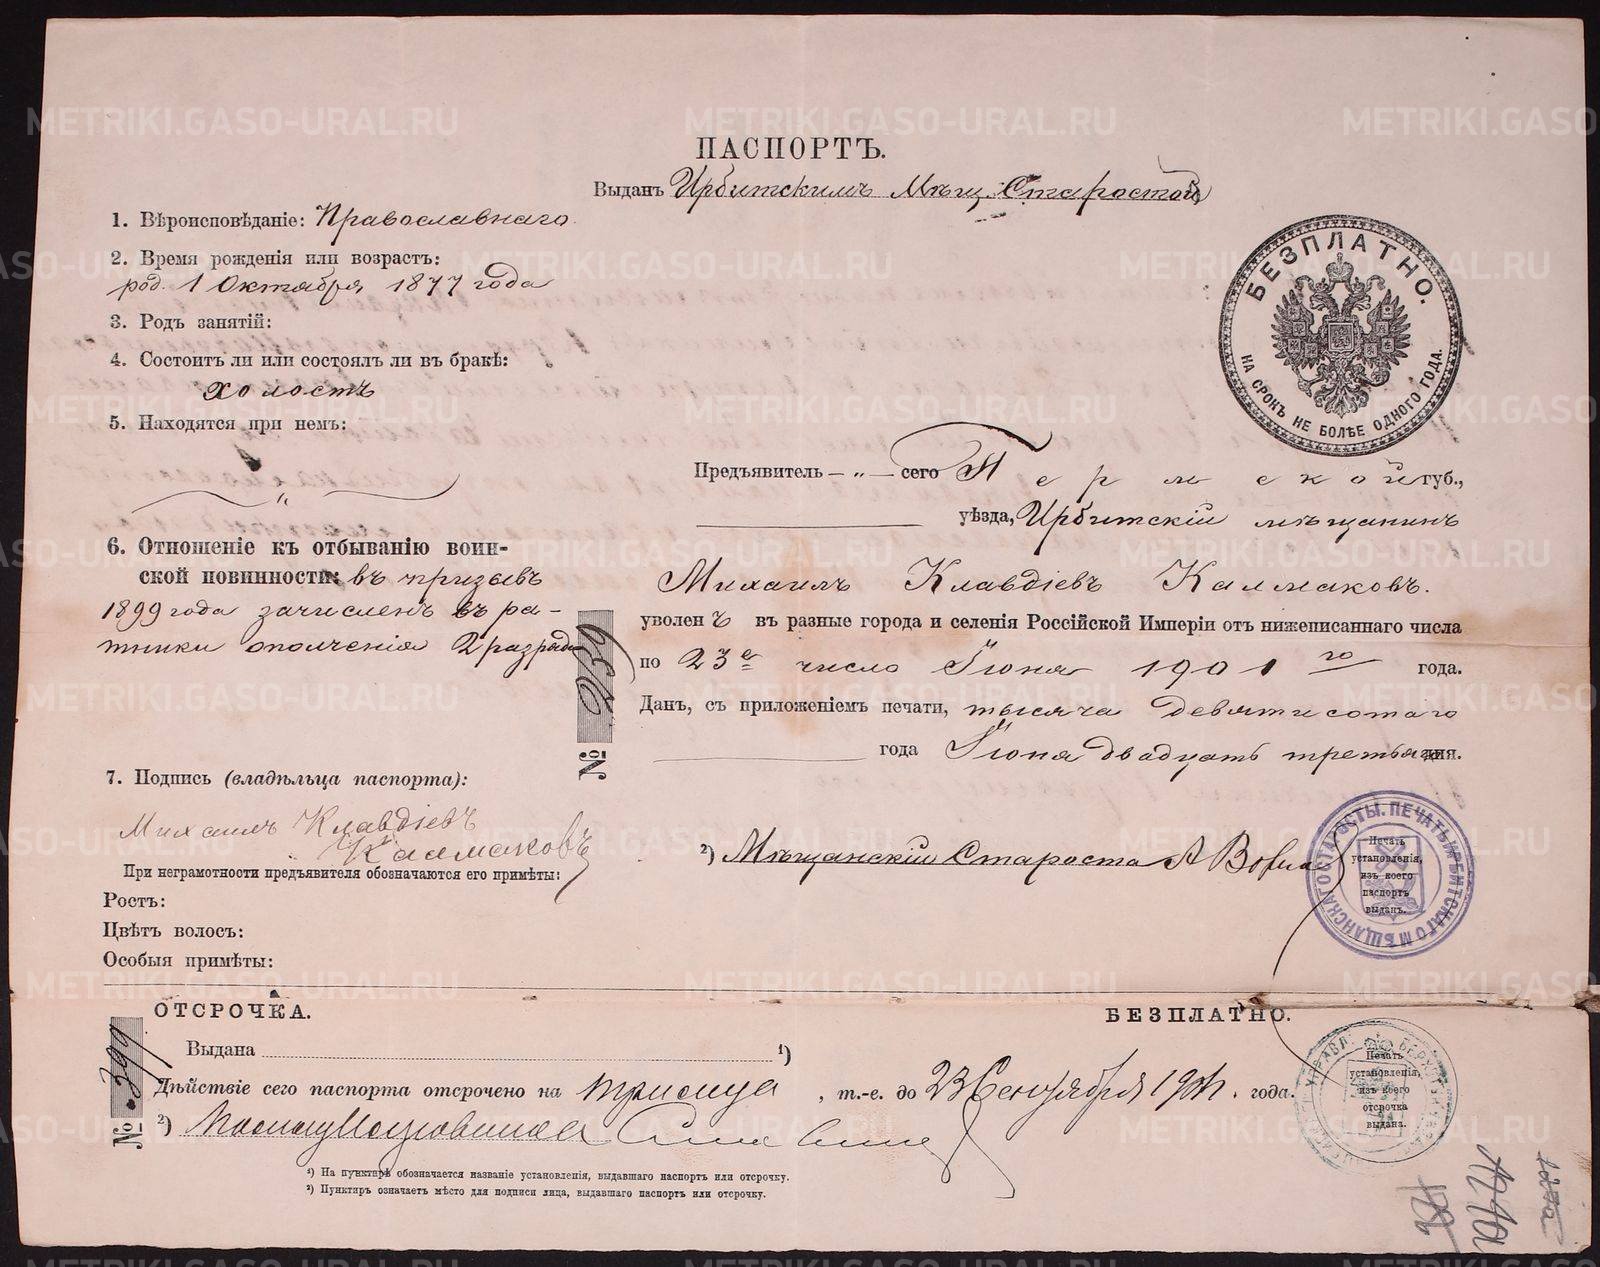 ПАСПОРТЪ.
Выданъ Ирбитскимъ Мѣщ. Старостой
1. Вѣроисповѣданіе: Православнаго
2. Время рожденія или возрастъ:
род. 1 Октября 1877 года
3. Родъ занятій:
4. Состоитъ ли или состоялъ ли въ бракѣ:
холостъ
5. Находятся при немъ:
"
6. Отношеніе къ отбыванію воин-
ской повинности: въ призывъ
1899 года зачисленъ въ ра-
тники ополченія 2 разряда
7. Подпись (владѣльца паспорта):
Михаилъ Клавдіевъ
Калмаковъ
При неграмотности предъявителя обозначаются его примѣты:
Ростъ:
Цвѣтъ волосъ:
Особыя примѣты:
БЕЗПЛАТНО.
НА СРОКЪ НЕ БОЛѢЕ ОДНОГО ГОДА.
Предъявитель — „ — сего Пермской губ.,
уѣзда, Ирбитскій мѣщанинъ
Михаилъ Клавдіевъ Калмаковъ.
уволенъ въ разные города и селенія Россійской Имперіи отъ нижеписаннаго числа
по 23е число Іюня 1901 го года.
Данъ, съ приложеніемъ печати, тысяча девятисотаго
года Іюня двадцать третьяго дня.
№ 2139
2) Мѣщанскій Староста А
ПЕЧАТЬ ИРБИТСКАГО МѢЩАНСКАГО СТАРОСТЫ.
Печать
установленія,
изъ коего
паспортъ
выданъ.
ОТСРОЧКА.
БЕЗПЛАТНО.
№ 399
Выдана 1)
Дѣйствіе сего паспорта отсрочено на три мѣсяца, т.-е. до 23 Сентября 1901. года.
2)
Печать
установленія,
изъ коего
отсрочка
выдана.
1) На пунктирѣ обозначается названіе установленія, выдавшаго паспортъ или отсрочку.
2) Пунктиръ означаетъ мѣсто для подписи лица, выдавшаго паспортъ или отсрочку.
METRIKI.GASO-URAL.RU